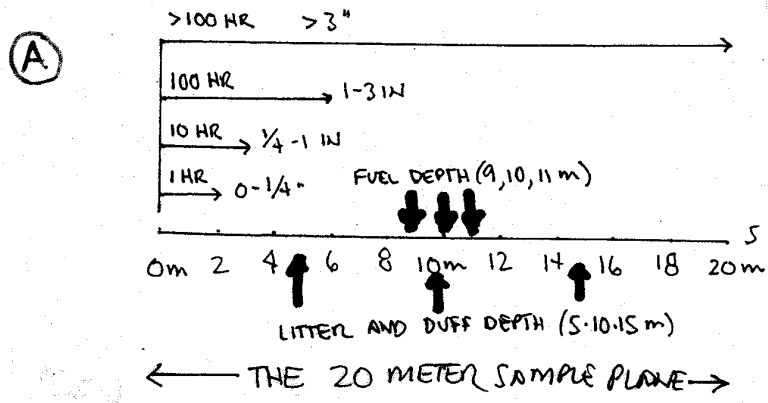 >100 HR >3"
A
100 HR 1-3 IN
10 HR 1/4-1 IN
1 HR 0-1/4"
FUEL DEPTH (9,10,11 m)
S
0m 2 4 6 8 10m 12 14 16 18 20m
LITTER AND DUFF DEPTH (5.10.15 m)
THE 20 METER SAMPLE PLANE